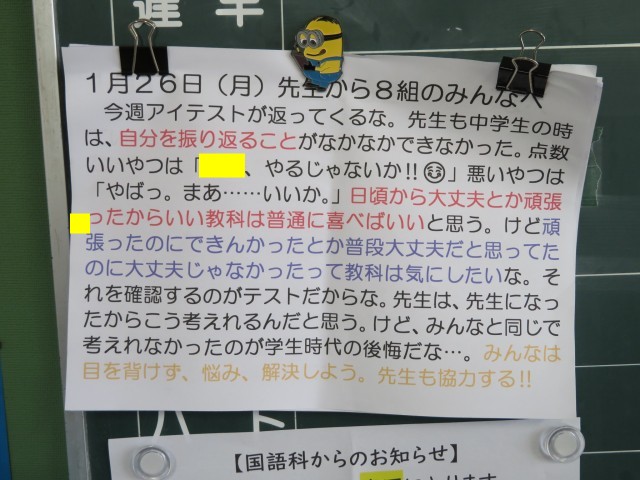 １月２６日（月）先生から８組のみんなへ
今週アイテストが返ってくるな。先生も中学生の時
は、自分を振り返ることがなかなかできなかった。点数
いいやつは「　　、やるじゃないか!!😊」悪いやつは
「やばっ。まあ……いいか。」日頃から大丈夫とか頑張
ったからいい教科は普通に喜べばいいと思う。けど頑
張ったのにできんかったとか普段大丈夫だと思ってた
のに大丈夫じゃなかったって教科は気にしたいな。そ
れを確認するのがテストだからな。先生は、先生になっ
たからこう考えれるんだと思う。けど、みんなと同じで
考えれなかったのが学生時代の後悔だな…。みんなは
目を背けず、悩み、解決しよう。先生も協力する!!
【国語科からのお知らせ】